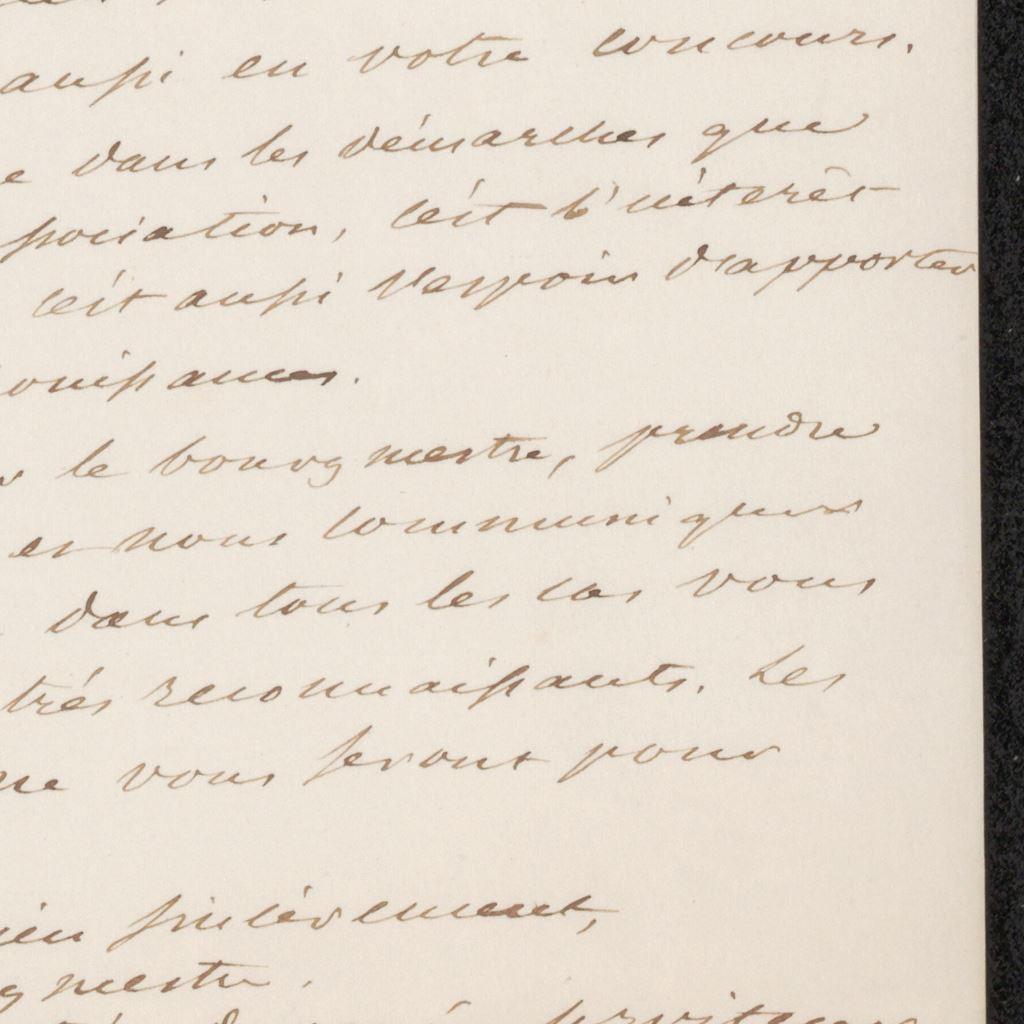 aussi en votre concours.
e dans les démarches que
ssociation, c'est l'intérêt
c'est aussi l'espoir d'apporter
ouissances.
le bourgmestre, prendre
et nous communiquer
dans tous les cas vous
très reconnaissants. Les
ne vous seront pour
ien sincèrement,
gmestre.